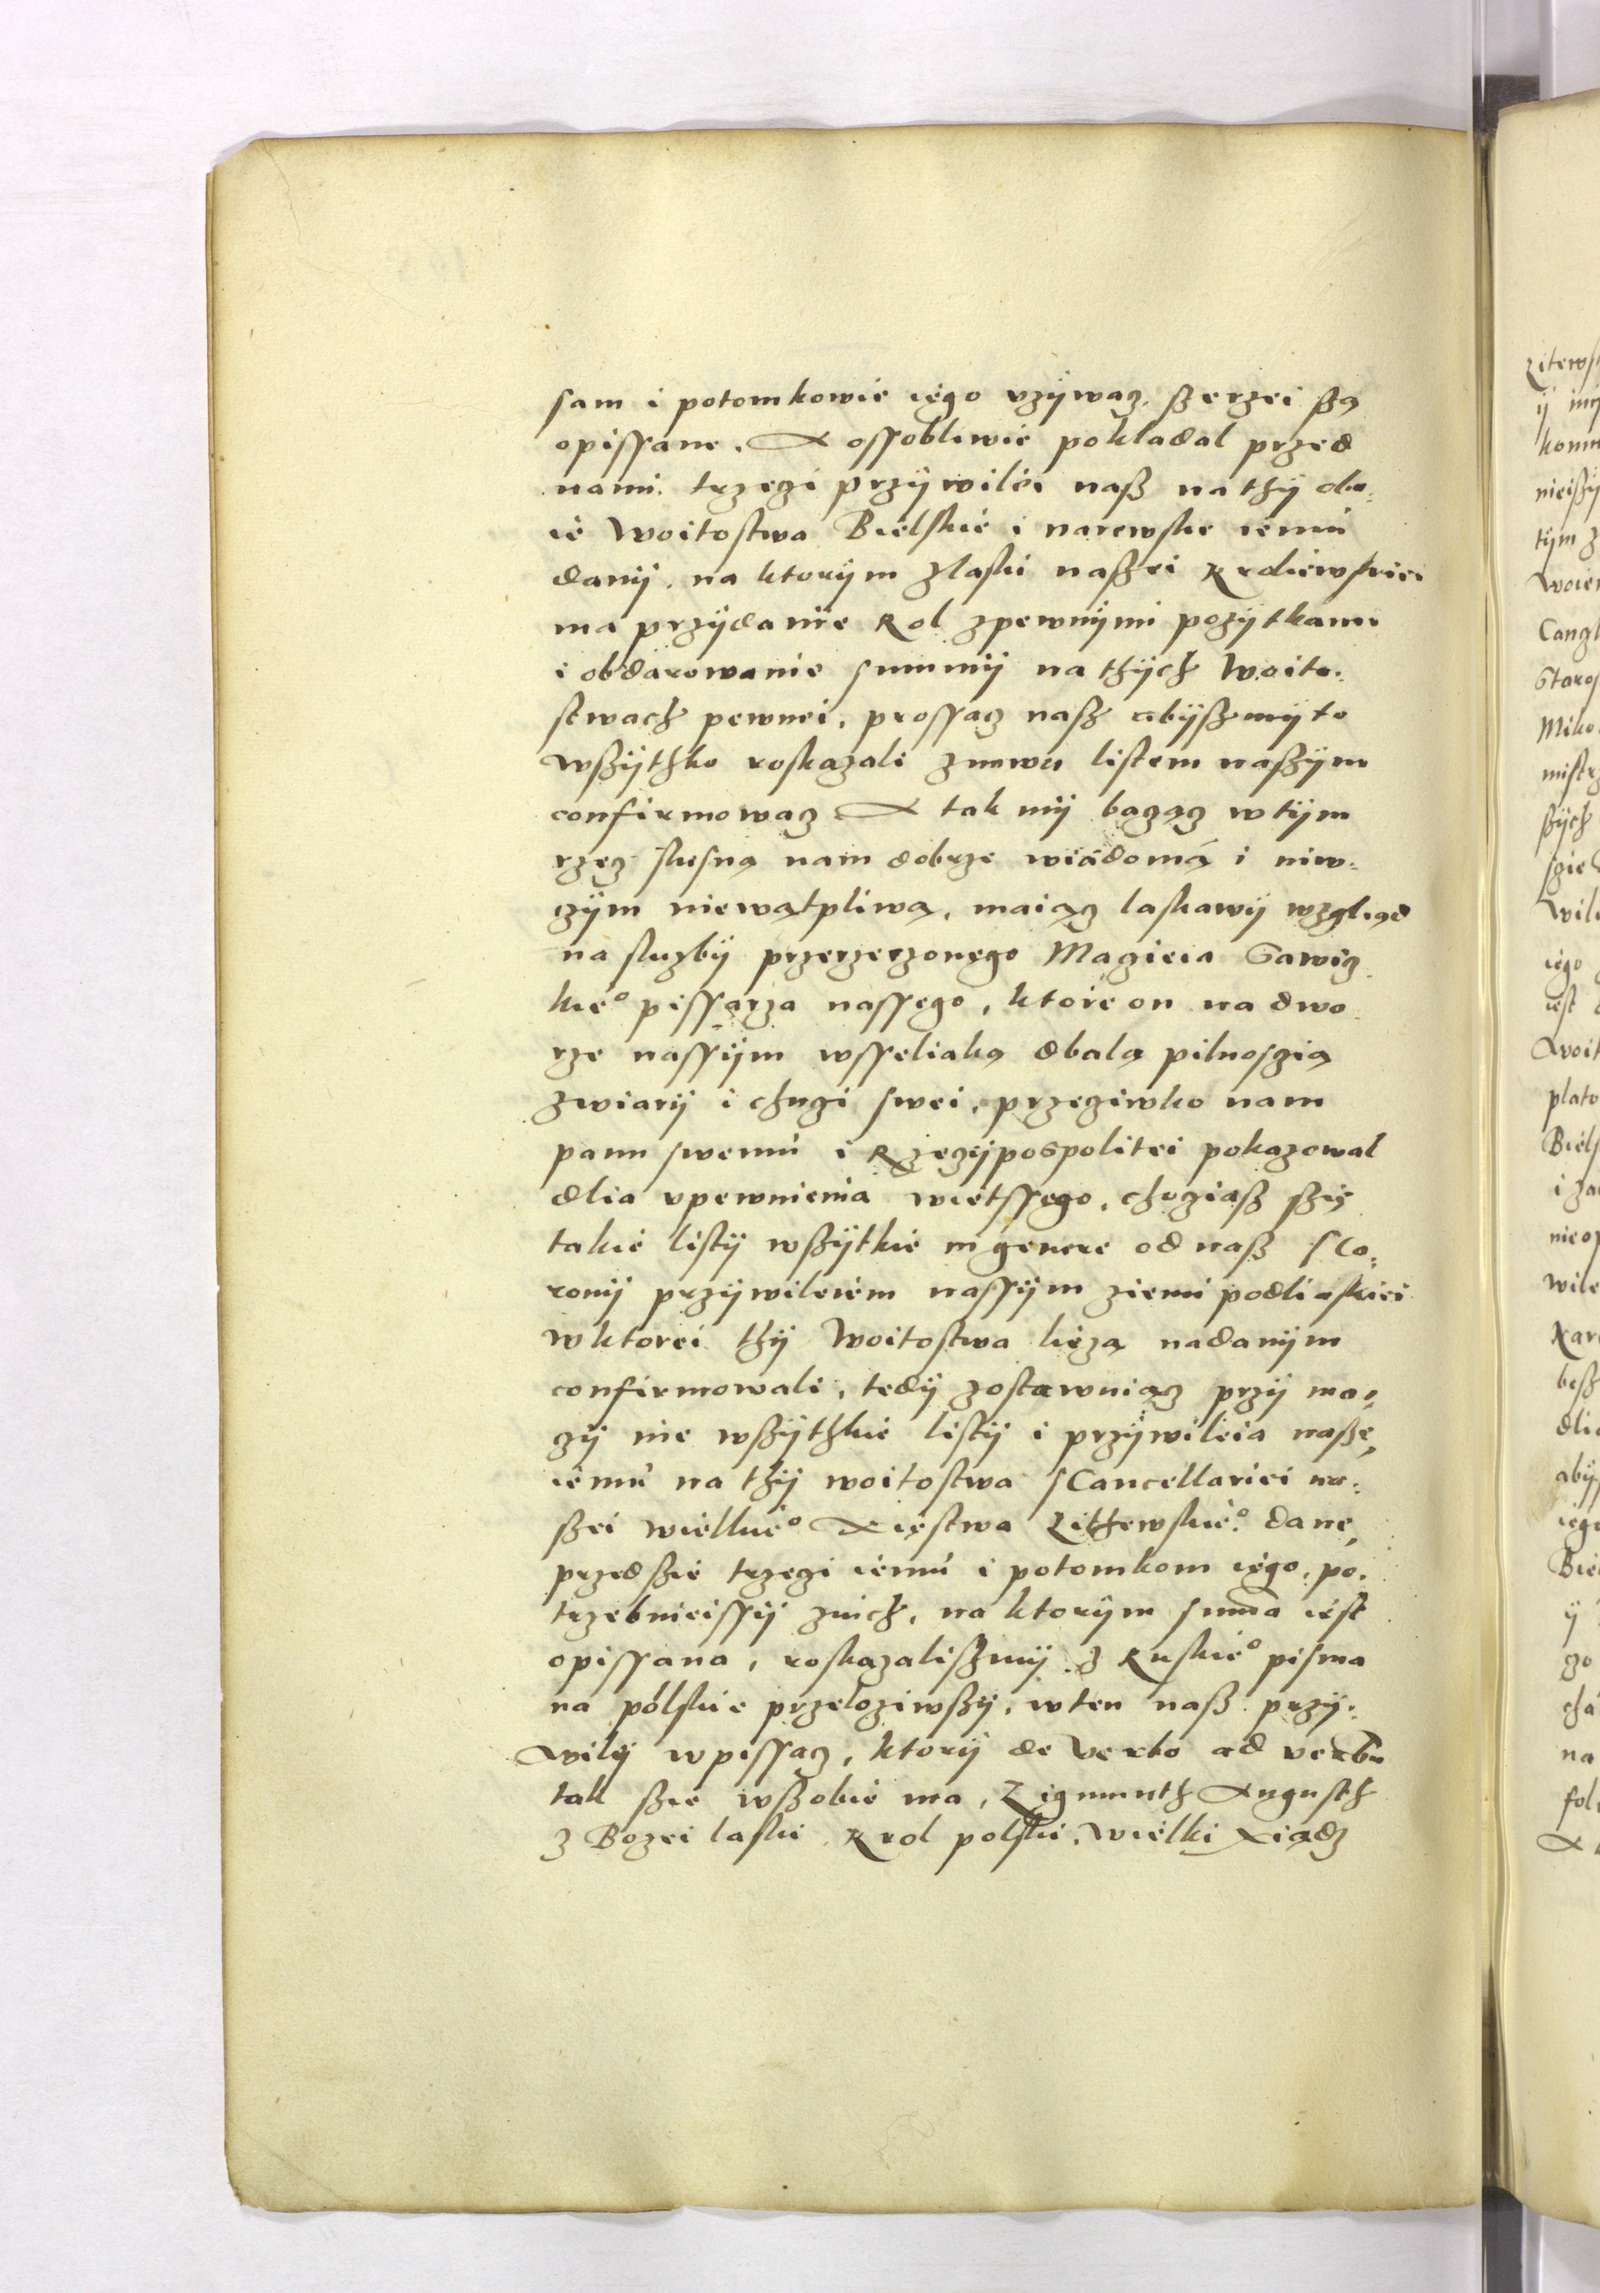 sam i potomkowie iego vzÿwaz, szerzei szą
opissane. A ossobliwie pokladal przed
nami trzezi przÿwilei nasz na thÿ obu-
ie Woitostwa Bielskie i narewskie iemu
danÿ, na ktorÿm z laski naszei Kroliewskiei
ma przÿdanie Rol z pewnÿmi pozÿtkami
i obdarowanie summÿ na thÿch Woito-
stwach pewnei, prossaz nasz abÿszmÿ to
wszÿthko roskazali znowu listem naszÿm
confirmowaz A tak mÿ bazaz w tÿm
rzez slusną nam dobrze wiadomą i niw-
zÿm niewątpliwą, maiąz laskawÿ wzgliad
na sluzbÿ przerzerzonego Magiera Gawiz
kie° pissarza nassego, ktore on na dwo
rze nassÿm wsseliaką dbalą pilnoszią
z wiarÿ i chuzi swei, przeziwko nam
panu swemu i Rzezÿpospolitei pokazowal
dlia vpewnienia wietssego, choziasz szię
takie listÿ wszÿtkie in genere od nasz s Co-
ronÿ przÿwileiem nassÿm ziemi podliaskiei
w ktorei thÿ Woitostwa lieza nadanÿm
confirmowali, tedÿ zostawuiąz przÿ mo-
zÿ nie wszÿthkie listÿ i przÿwileia nasze
iemu na thÿ woitostwa s Cancellariei na-
szei wielkie° Xięstwa Litthewskie° dane,
przedszie trzezi iemu i potomkom iego, po-
trzebnieissÿ znich, na ktorÿm suma iest
opissana, roskazaliszmÿ z Ruskie° pisma
na polskie przeloziwszÿ, w ten nasz przÿ-
wilÿ wpissaz, ktorÿ de verbo ad verbu
tak szie wszobie ma, Zigmunth Augusth
z Bozei laski Krol polski, Wielki Xiądz